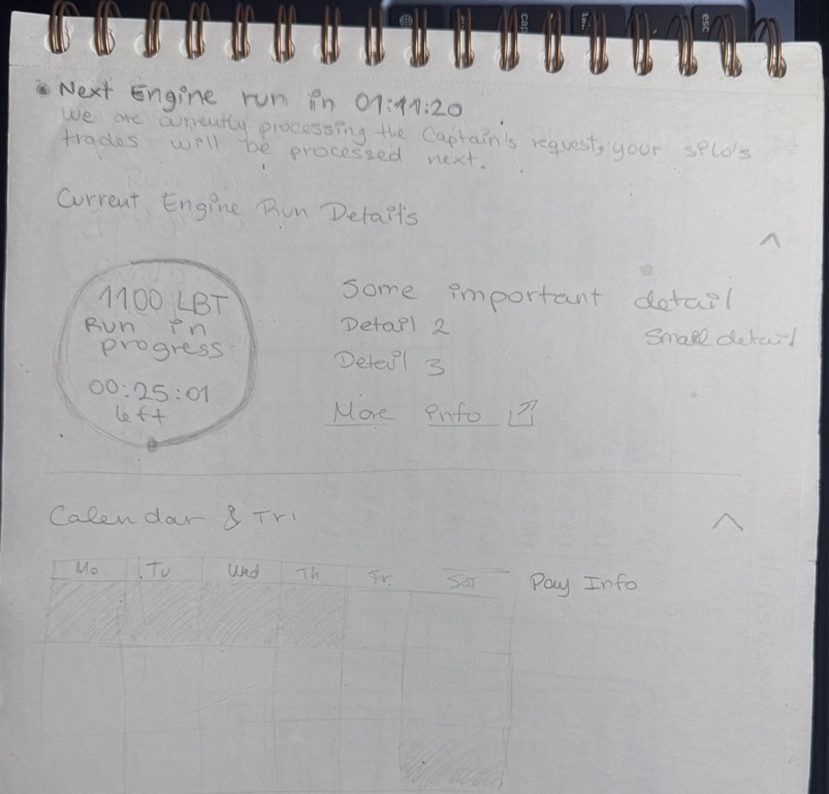 Next Engine run in 01:11:20
we are currently processing the Captain's request, your silo's
trades will be processed next.
Current Engine Run Details
1100 LBT
Run in
progress
00:25:01
left
Some important detail
Detail 2
Small detail
Detail 3
More info
Calendar & Tri
Mo Tu Wed Th Fr. Sat
Pay Info